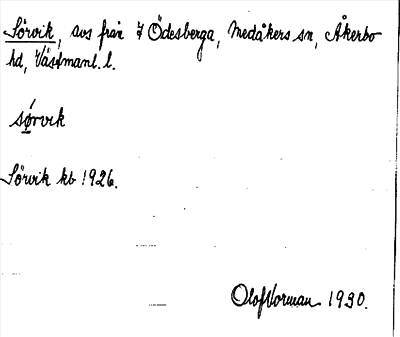 Sörvik, avs från 7 Ödesberga, Medåkers sn, Åkerbo
hd, Västmanl. l.
sørvik
Sörvik kb 1926.
Olof Norman 1930.